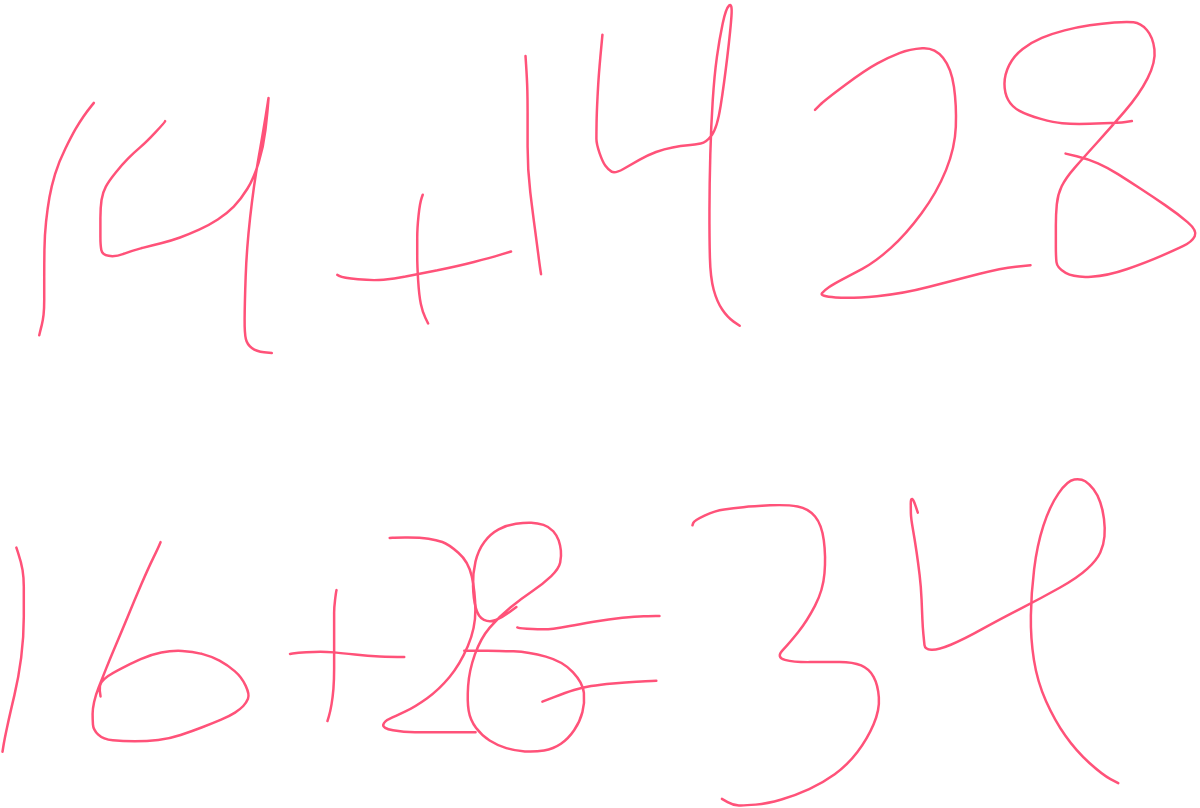 14+14 28
16+28=34